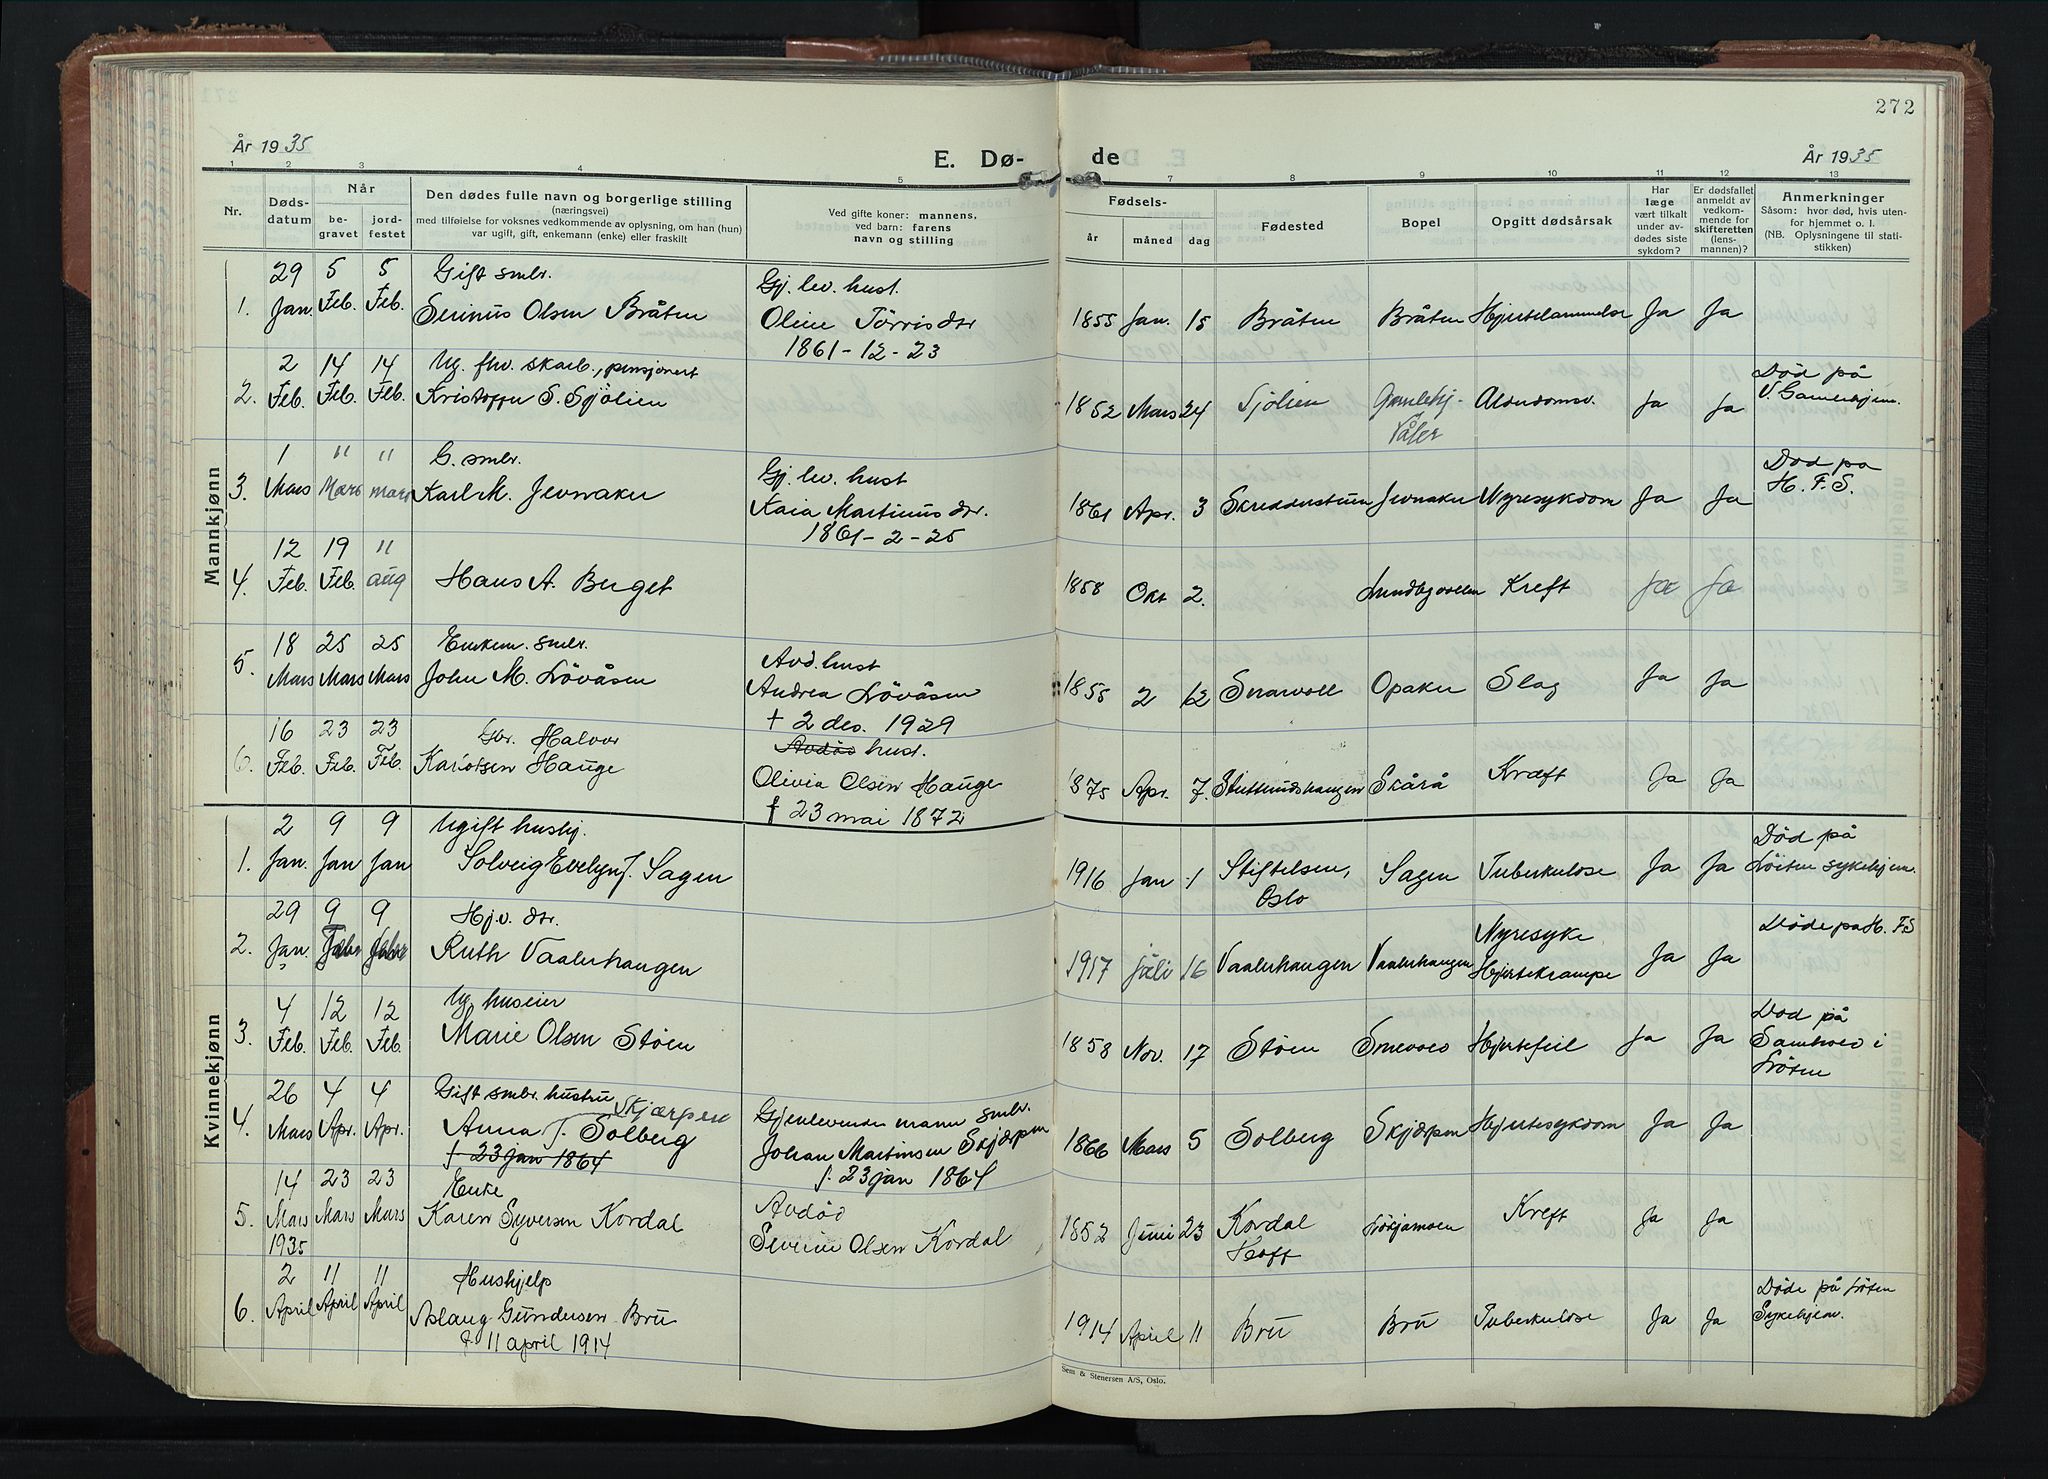 272
År 1935
E. Dø-
de
År 1935
1 2 3 4 5 7 8 9 10 11 12 13
Nr.
Døds-
datum
Når
be-
gravet
jord-
festet
Den dødes fulle navn og borgerlige stilling
(næringsvei)
med tilføielse for voksnes vedkommende av oplysning, om han (hun)
var ugift, gift, enkemann (enke) eller fraskilt
Ved gifte koner: mannens,
ved barn: farens
navn og stilling
Fødsels-
år måned dag
Fødested
Bopel
Opgitt dødsårsak
Har
læge
vært tilkalt
under av-
dødes siste
sykdom?
Er dødsfallet
anmeldt av
vedkom-
mende for
skifteretten
(lens-
mannen)?
Anmerkninger
Såsom: hvor død, hvis uten-
for hjemmet o. l.
(NB. Oplysningene til stati-
stikken)
Mannkjønn
1.
29 Jan. 5 Feb. 5 Feb.
Gift smbr.
Serinus Olsen Bråten
Gj. lev. hust.
Oline Törrisdtr
1861-12-23
1855 Jan. 15 Bråten Bråten Hjertelammelse Ja Ja
2.
2 Feb. 14 Feb. 14 Feb.
Ug. fhv. skarb., pensjonert
Kristoffer S. Sjölien
1852 Mars 24 Sjölien Gamlehj- Våler Alderdomsv. Ja Ja
Död på
V. Gamlehjem.
3.
1 Mars " Mars " mars
G. smbr.
Karl M. Jevnaker
Gj. lev. hust
Kaia Martinusdtr.
1861-2-25
1861 Apr. 3 Skredderstuen Jevnaker Nyresykdom Ja Ja
Död på
H. F. S.
4.
12 Feb. 19 Feb. " aug
Hans A. Berget
1858 Okt 2. Kreft Ja Ja
5.
18 Mars 25 Mars 25 Mars
Enkem. smbr.
John M. Lövåsen
Avd. hust
Andrea Lövåsen
† 2 des. 1929
1855 2 12 Opaker Slag Ja Ja
6.
16 Feb. 23 Feb. 23 Feb.
Gbr. Halvor
Karlsen Hauge
Avdöd hust.
Olivia Olsen Hauge
f 23 mai 1872
1875 Apr. 7. Skårå Kræft Ja Ja
Kvinnekjønn
1.
2 Jan. 9 Jan 9 Jan
Ugift hushj.
Solveig Evelyn J. Sagen
1916 Jan 1 Stiftelsen, Oslo Sagen Tuberkulose Ja Ja
Död på
Löiten sykehjem.
2.
29 Jan. 9 9
Hj.v. dtr.
Ruth Vaalerhaugen
1917 juli 16 Vaalerhaugen Vaalerhaugen Nyresyke Hjertekrampe Ja Ja
Döde på H. F S
3.
4 Feb. 12 Feb. 12 Feb.
Ug. huseier
Marie Olsen Stöen
1858 Nov. 17 Stöen Hjertefeil Ja Ja
Död på
i
Löten
4.
26 Mars 4 Apr. 4 Apr.
Gift smbr. hustru
Skjærpen
Anna J. Solberg
f 23 jan 1864
Gjenlevende mann smbr.
Johan Martinsen Skjærpen
f. 23 jan 1864
1866 Mars 5 Solberg Skjærpen Hjertesykdom Ja Ja
5.
14 Mars 1935 23 Mars 23 Mars
Enke
Karen Syversen Kordal
Avdöd
Severin Olsen Kordal
1852 Juni 23 Kordal Hoff Kreft Ja Ja
6.
2 April 11 April 11 April
Hushjelp
Aslaug Gundersen Bru
f. 11 april 1914
1914 April 11 Bru Bru Tuberkulose Ja Ja
Döde på Löten
Sykehjem.
Sem & Stenersen A/S, Oslo.